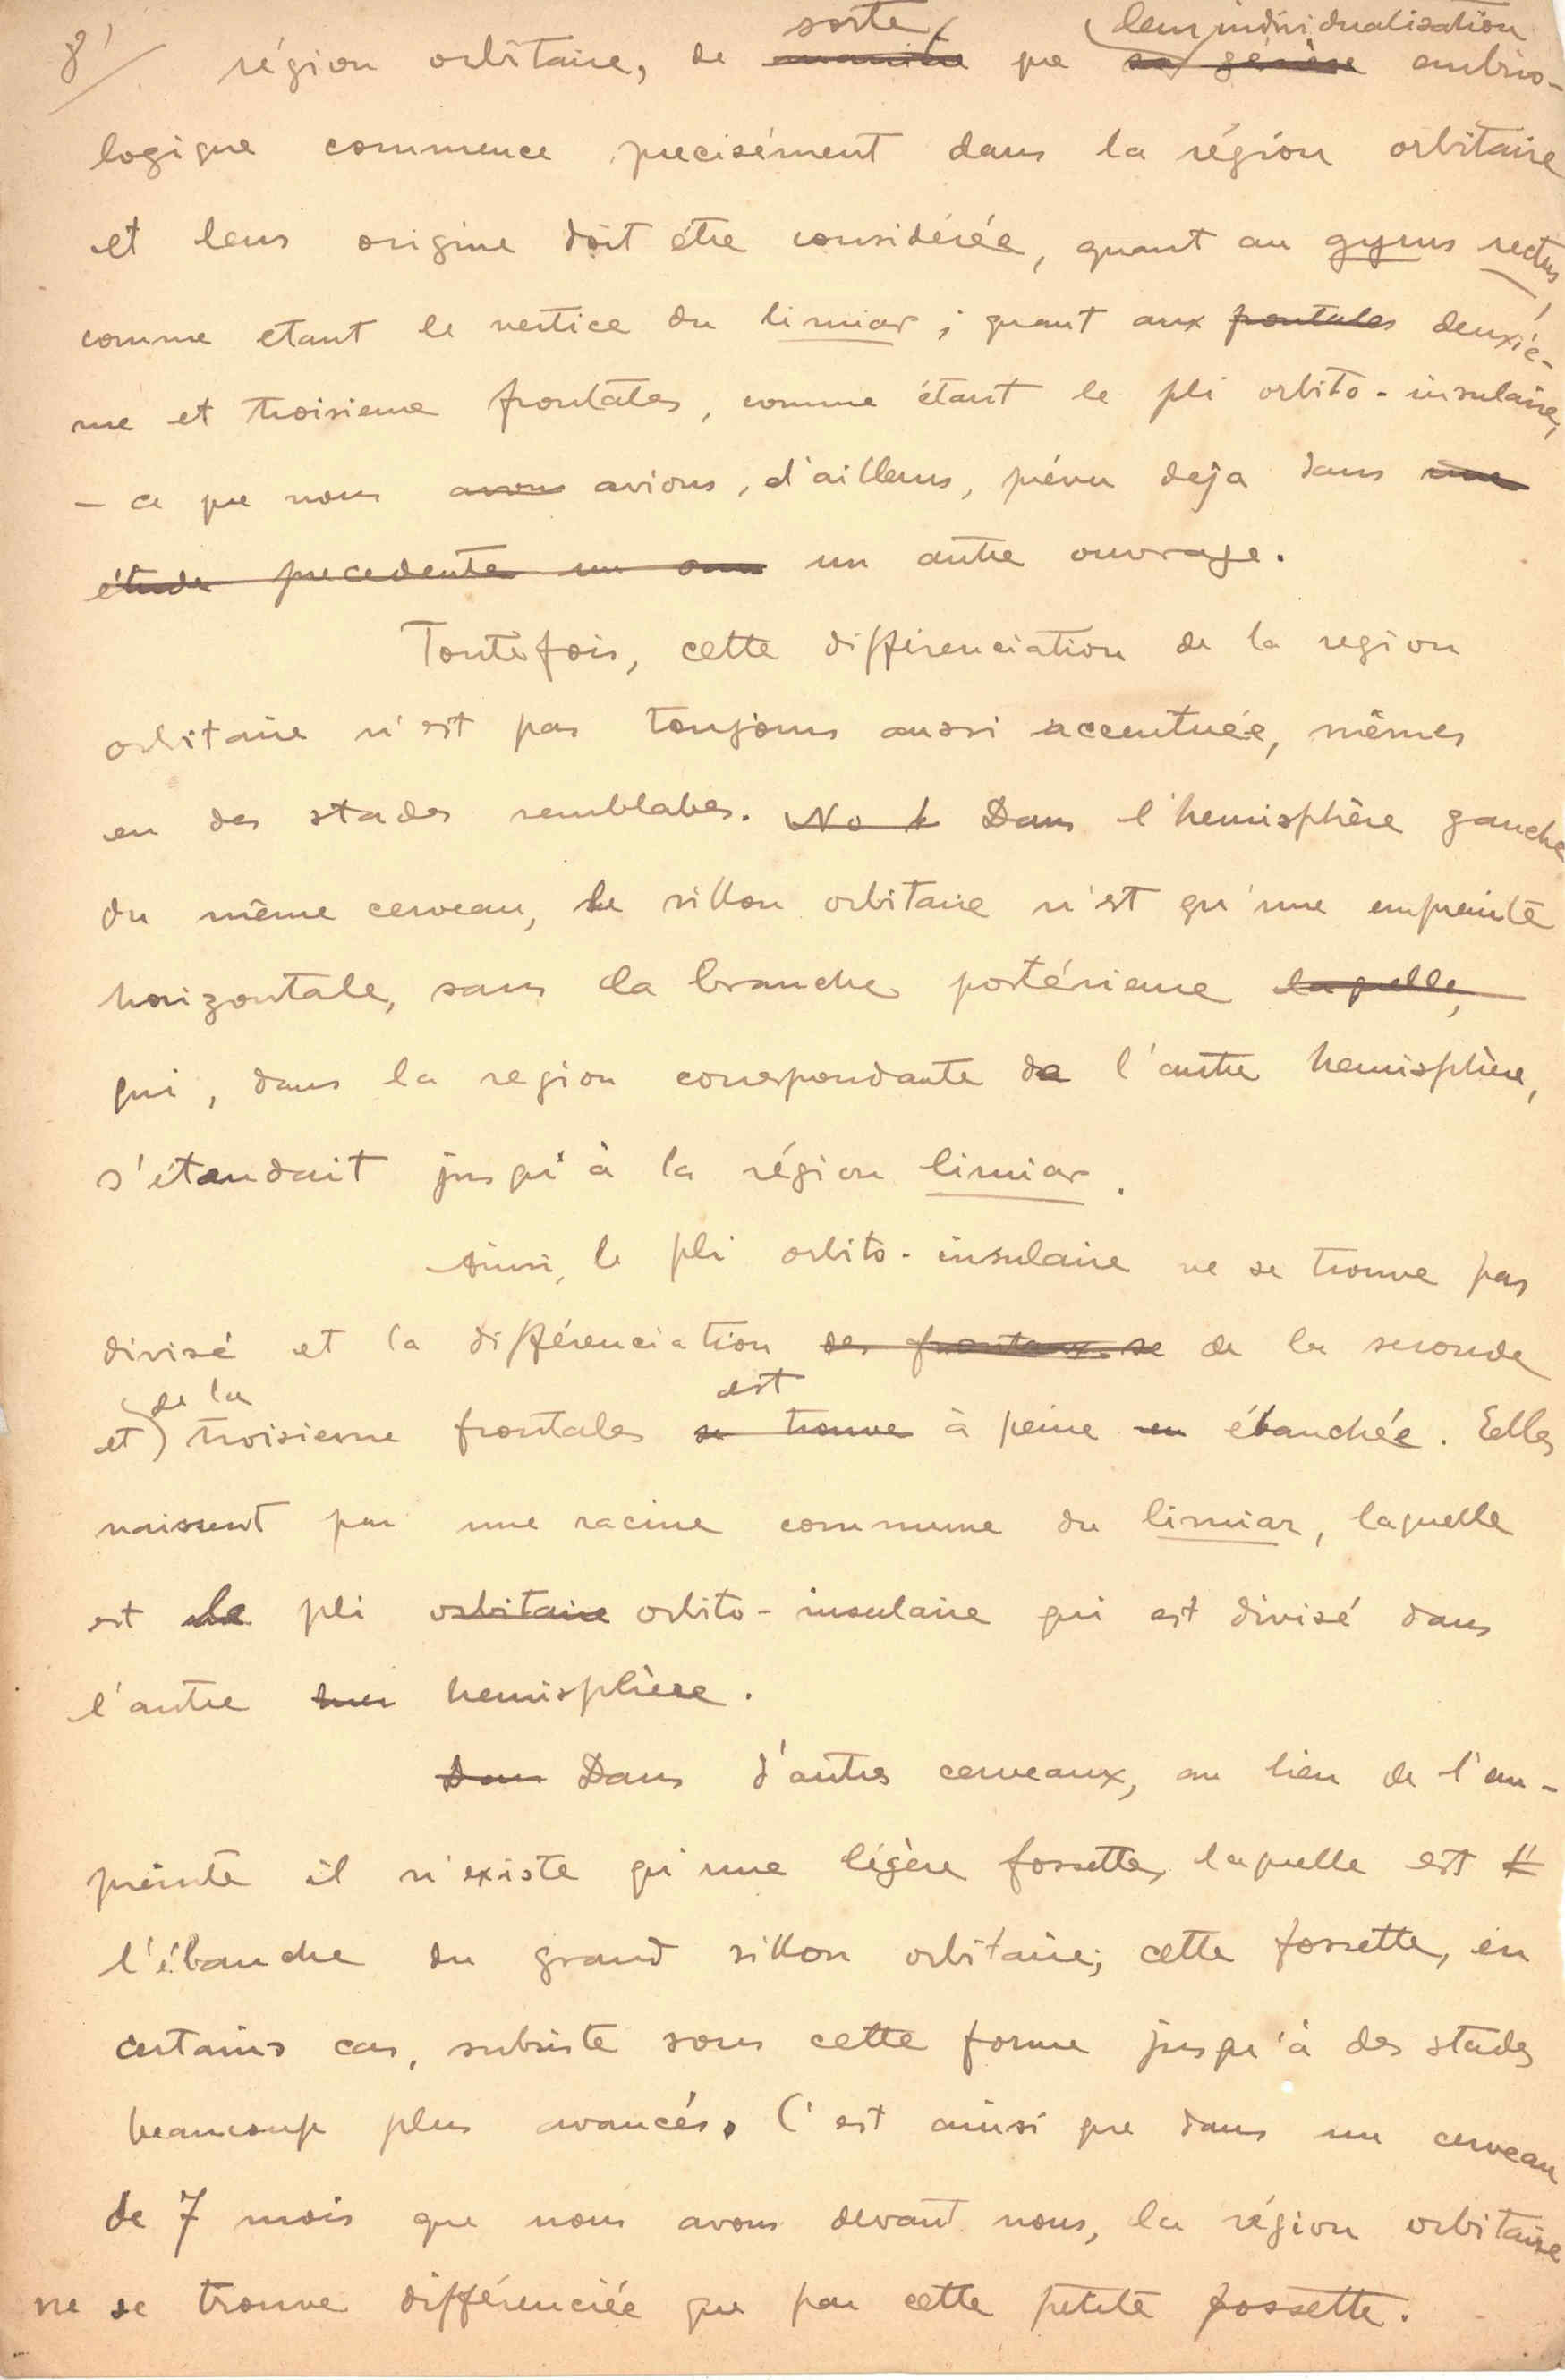 8'/ région orbitaire, de ~~manière~~ sorte que ~~sa génèse~~ leur individualisation embrio-
logique commence precisément dans la région orbitaire
et leur origine doit être considérée, quant au gyrus rectus,
comme etant le vertice du limiar ; quant aux ~~frontales~~ deuxiè-
me et troisieme frontales, comme étant le pli orbito-insulaire,
– ce que nous ~~avons~~ avions, d'ailleurs, prévu deja dans ~~une~~
~~étude precedente un ouv~~ un autre ouvrage.
Toutefois, cette différenciation de la region
orbitaire n'est pas toujours aussi accentuée, mêmes
en des stades semblables. ~~No h~~ Dans l'hemisphère gauche
du même cerveau, le sillon orbitaire n'est qu'une empreinte
horizontale, sans la branche postérieure ~~laquelle,~~
qui, dans la region correspondante de l'autre hemisphère,
s'étendait jusqu'à la région limiar.
Ainsi, le pli orbito-insulaire ne se trouve pas
divisé et la différenciation ~~des frontaux se~~ de la seconde
et de la troisieme frontales ~~se trouve~~ est à peine ~~en~~ ébauchée. Elles
naissent par une racine commune du limiar, laquelle
est le pli ~~orbitaire~~ orbito-insulaire qui est divisé dans
l'autre ~~hem~~ hemisphère.
~~Dans~~ Dans d'autres cerveaux, au lieu de l'em-
preinte il n'existe qu'une légère fossette, laquelle est
l'ébauche du grand sillon orbitaire; cette fossette, en
certains cas, subsiste sous cette forme jusqu'à des stades
beaucoup plus avancés. C'est ainsi que dans un cerveau
de 7 mois que nous avons devant nous, la région orbitaire
ne se trouve différenciée que par cette petite fossette.